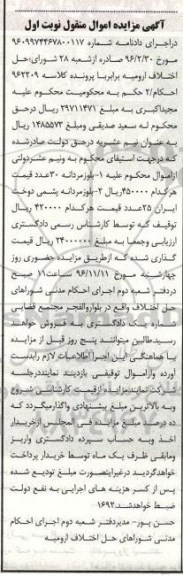 آگهی مزایده اموال منقول نوبت اول
دراجرای دادنامه شماره ۹۶۰۹۹۷۴۴۶۷۸۰۰۱۱۷
مورخ ۹۶/۲/۳۰ صادره ازشعبه ۲۸ شورای حل
اختلاف ارومیه برابر با پرونده کلاسه ۹۶۲۲۰۹
احکام/۲ حکم به محکومیت محکوم علیه
مجیداکبری به مبلغ ۲۹۷۱۱۴۷۱ ریال درحق
محکوم له سعید صدیقی ومبلغ ۱۴۸۵۵۷۳ ریال
به عنوان نیم عشریه درحق دولت صادرشده
که درجهت استیفای محکوم به ونیم عشردولتی
ازاموال محکوم علیه ۱-بلوزمردانه ۳۰عدد قیمت
هرکدام ۴۵۰۰۰۰ریال ۲-بلوزمردانه پشمی دوخت
ایران ۲۵عدد قیمت هرکدام ۴۲۰۰۰۰ ریال
توقیف که توسط کارشناس رسمی دادگستری
ارزیابی وجمعا به مبلغ ۲۴۰۰۰۰۰۰ ریال قیمت
گذاری شده که ازطریق مزایده حضوری روز
چهارشنبه مورخ ۹۶/۱۱/۱۱ ساعت۱۱ صبح
دردفتر شعبه دوم اجرای احکام مدنی شوراهای
حل اختلاف واقع در بلواروالفجر مجتمع قضایی
شماره یک دادگستری به فروش خواهد
رسیدطالبین میتوانند پنج روز قبل از مزایده
با هماهنگی این اجرا اطلاعات لازم رابدست
آورده وازاموال توقیفی بازدید نماینددرجلسه
شرکت نمایندمزایده ازقیمت کارشناس شروع
وبه بالاترین مبلغ پیشنهادی واگذارمیگردد که
ده درصد از مبلغ مزایده فی المجلس ازخریدار
اخذ وبه حساب سپرده دادگستری واریز
ومابقی ظرف یک ماه توسط خریدار پرداخت
خواهدگردید درغیراینصورت مبلغ تودیع شده
پس از کسر هزینه های اجرایی به نفع دولت
ضبط خواهدشد.۱۶۹۲
حسن پور- مدیردفتر شعبه دوم اجرای احکام
مدنی شوراهای حل اختلاف ارومیه